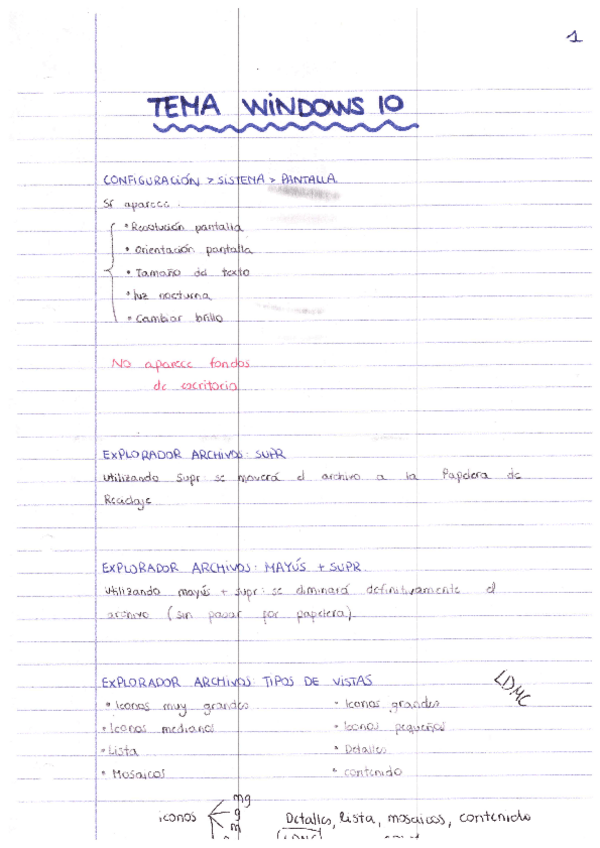 1
TEMA WINDOWS 10
CONFIGURACIÓN > SISTEMA > PANTALLA
Sí aparece:
• Resolución pantalla
• Orientación pantalla
• Tamaño del texto
• luz nocturna
• Cambiar brillo
NO aparece fondos
de escritorio
EXPLORADOR ARCHIVOS: SUPR
Utilizando Supr se moverá el archivo a la Papelera de
Reciclaje
EXPLORADOR ARCHIVOS: MAYÚS + SUPR.
Utilizando mayús + supr: se eliminará definitivamente el
archivo (sin pasar por papelera).
EXPLORADOR ARCHIVOS: TIPOS DE VISTAS
LDMC
• Iconos muy grandes • Iconos grandes
• Iconos medianos • Iconos pequeños
• Lista • Detalles
• Mosaicos • contenido
iconos mg
g
m
Detalles, lista, mosaicos, contenido